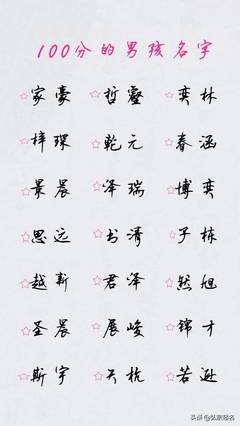 100分的男孩名字
☆家豪 ☆哲玺 ☆奕林
☆梓琛 ☆乾元 ☆春涵
☆景晨 ☆泽瑞 ☆博奕
☆思远 ☆书清 ☆子栋
☆越新 ☆君泽 ☆然旭
☆圣晨 ☆展峻 ☆锦才
☆斯宇 ☆天杭 ☆若逊